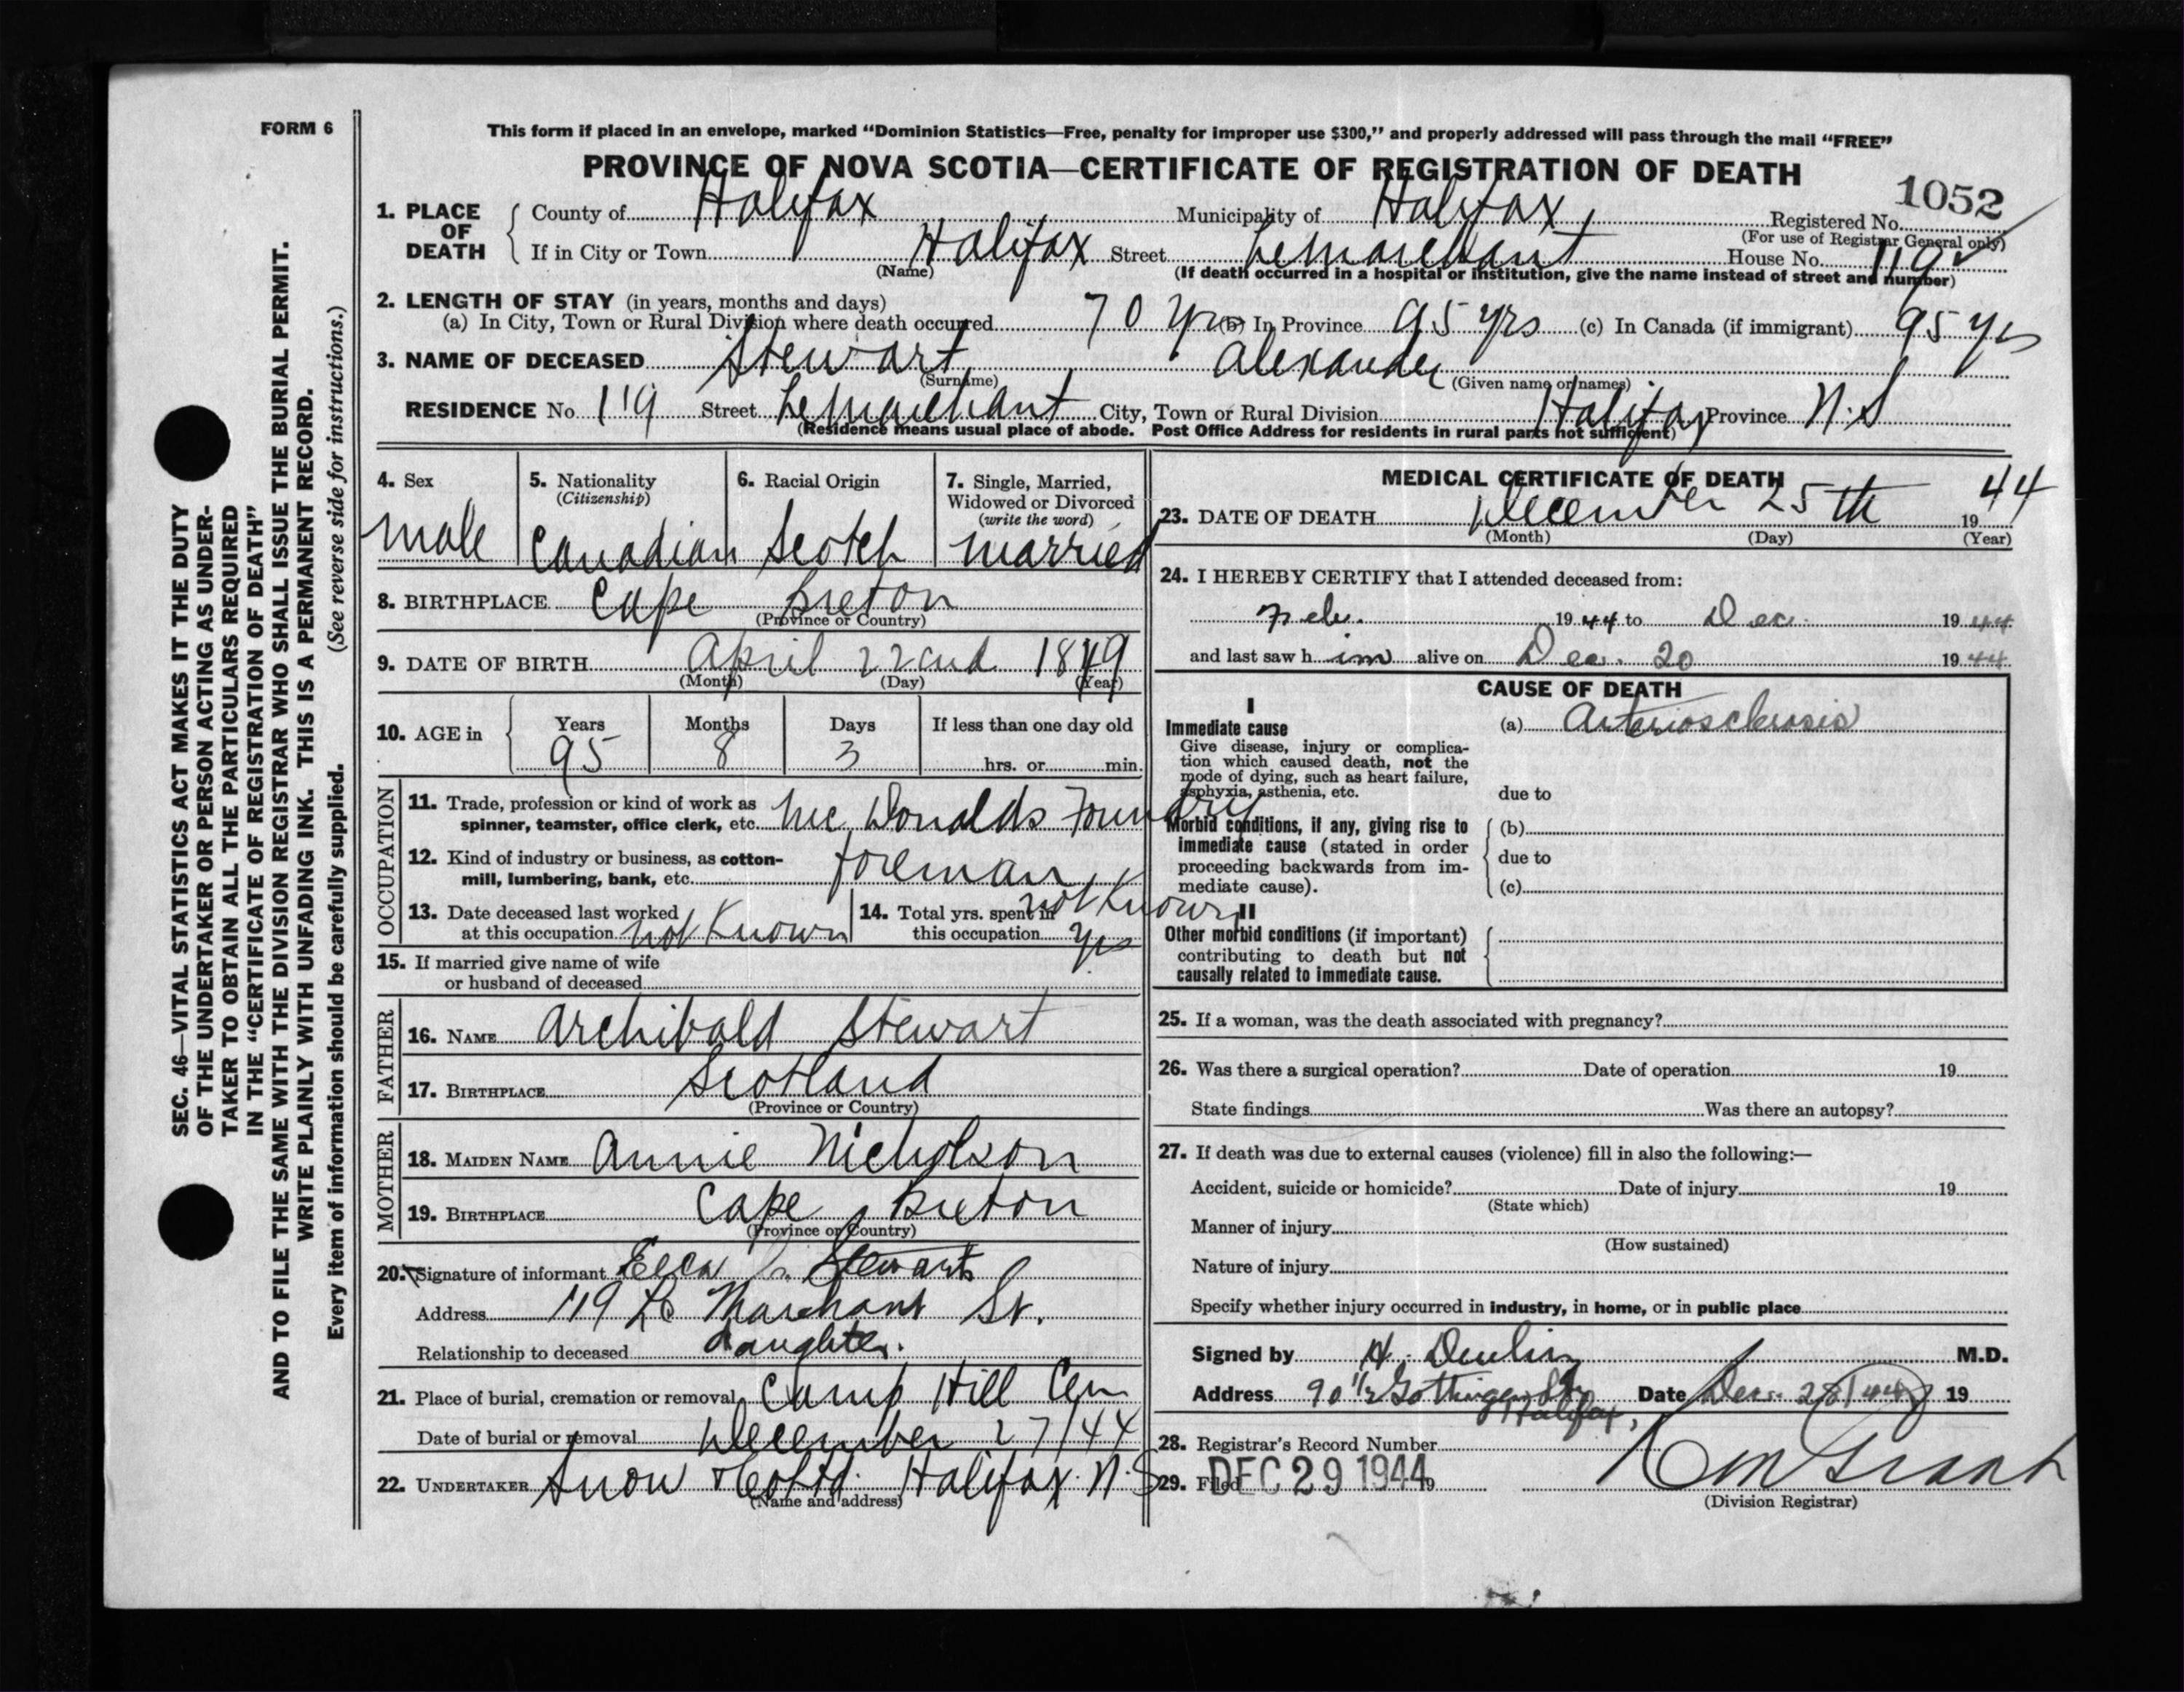 FORM 6
This form if placed in an envelope, marked “Dominion Statistics—Free, penalty for improper use $300,” and properly addressed will pass through the mail “FREE”
PROVINCE OF NOVA SCOTIA—CERTIFICATE OF REGISTRATION OF DEATH
1052
1. PLACE OF DEATH
County of Halifax Municipality of Halifax Registered No.
(For use of Registrar General only)
If in City or Town Halifax Street LeMarchant House No. 119
(Name) (If death occurred in a hospital or institution, give the name instead of street and number)
2. LENGTH OF STAY (in years, months and days)
(a) In City, Town or Rural Division where death occurred 70 yrs (b) In Province 95 yrs (c) In Canada (if immigrant) 95 yrs
3. NAME OF DECEASED Stewart Alexander
(Surname) (Given name or names)
RESIDENCE No. 119 Street LeMarchant City, Town or Rural Division Halifax Province N.S
(Residence means usual place of abode. Post Office Address for residents in rural parts not sufficient)
4. Sex
male
5. Nationality
(Citizenship)
Canadian
6. Racial Origin
Scotch
7. Single, Married,
Widowed or Divorced
(write the word)
married
8. BIRTHPLACE Cape Breton
(Province or Country)
9. DATE OF BIRTH April 22nd 1849
(Month) (Day) (Year)
10. AGE in
Years Months Days If less than one day old
95 8 3 hrs. or min.
OCCUPATION
11. Trade, profession or kind of work as
spinner, teamster, office clerk, etc. McDonalds Foundry
12. Kind of industry or business, as cotton-
mill, lumbering, bank, etc. foreman
13. Date deceased last worked
at this occupation not Known
14. Total yrs. spent in not Known
this occupation yrs
15. If married give name of wife
or husband of deceased
FATHER
16. NAME Archibald Stewart
17. BIRTHPLACE Scotland
(Province or Country)
MOTHER
18. MAIDEN NAME Annie Nicholson
19. BIRTHPLACE Cape Breton
(Province or Country)
20. Signature of informant Stewart
Address 119 Le Marchant St.
Relationship to deceased daughter.
21. Place of burial, cremation or removal Camp Hill Cem
Date of burial or removal December 27/44
22. UNDERTAKER Snow & Co Ltd. Halifax N.S
(Name and address)
MEDICAL CERTIFICATE OF DEATH
23. DATE OF DEATH December 25th 1944
(Month) (Day) (Year)
24. I HEREBY CERTIFY that I attended deceased from:
Feb. 1944 to Dec. 1944
and last saw him alive on Dec. 20 1944
CAUSE OF DEATH
I
Immediate cause
Give disease, injury or complica-
tion which caused death, not the
mode of dying, such as heart failure,
asphyxia, asthenia, etc.
(a) Arteriosclerosis
due to
Morbid conditions, if any, giving rise to
immediate cause (stated in order
proceeding backwards from im-
mediate cause).
(b)
due to
(c)
II
Other morbid conditions (if important)
contributing to death but not
causally related to immediate cause.
25. If a woman, was the death associated with pregnancy?
26. Was there a surgical operation? Date of operation 19
State findings Was there an autopsy?
27. If death was due to external causes (violence) fill in also the following:—
Accident, suicide or homicide? Date of injury 19
(State which)
Manner of injury
(How sustained)
Nature of injury
Specify whether injury occurred in industry, in home, or in public place
Signed by H. Devlin M.D.
Address 90 1/2 Gottingen St Date Dec. 28/44 19
Halifax,
28. Registrar's Record Number
29. Filed DEC 29 1944 19
Grant
(Division Registrar)
SEC. 46—VITAL STATISTICS ACT MAKES IT THE DUTY
OF THE UNDERTAKER OR PERSON ACTING AS UNDER-
TAKER TO OBTAIN ALL THE PARTICULARS REQUIRED
IN THE “CERTIFICATE OF REGISTRATION OF DEATH”
AND TO FILE THE SAME WITH THE DIVISION REGISTRAR WHO SHALL ISSUE THE BURIAL PERMIT.
WRITE PLAINLY WITH UNFADING INK. THIS IS A PERMANENT RECORD.
Every item of information should be carefully supplied. (See reverse side for instructions.)